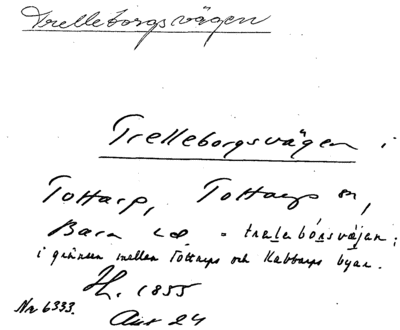 Trelleborgsvägen
Trelleborgsvägen i
Tottarp, Tottarps sn,
Bara hd = traleborsväjan;
i gränsen mellan Tottarps och Kabbarps byar.
H. 1855
Nr 6333.
Avt 24